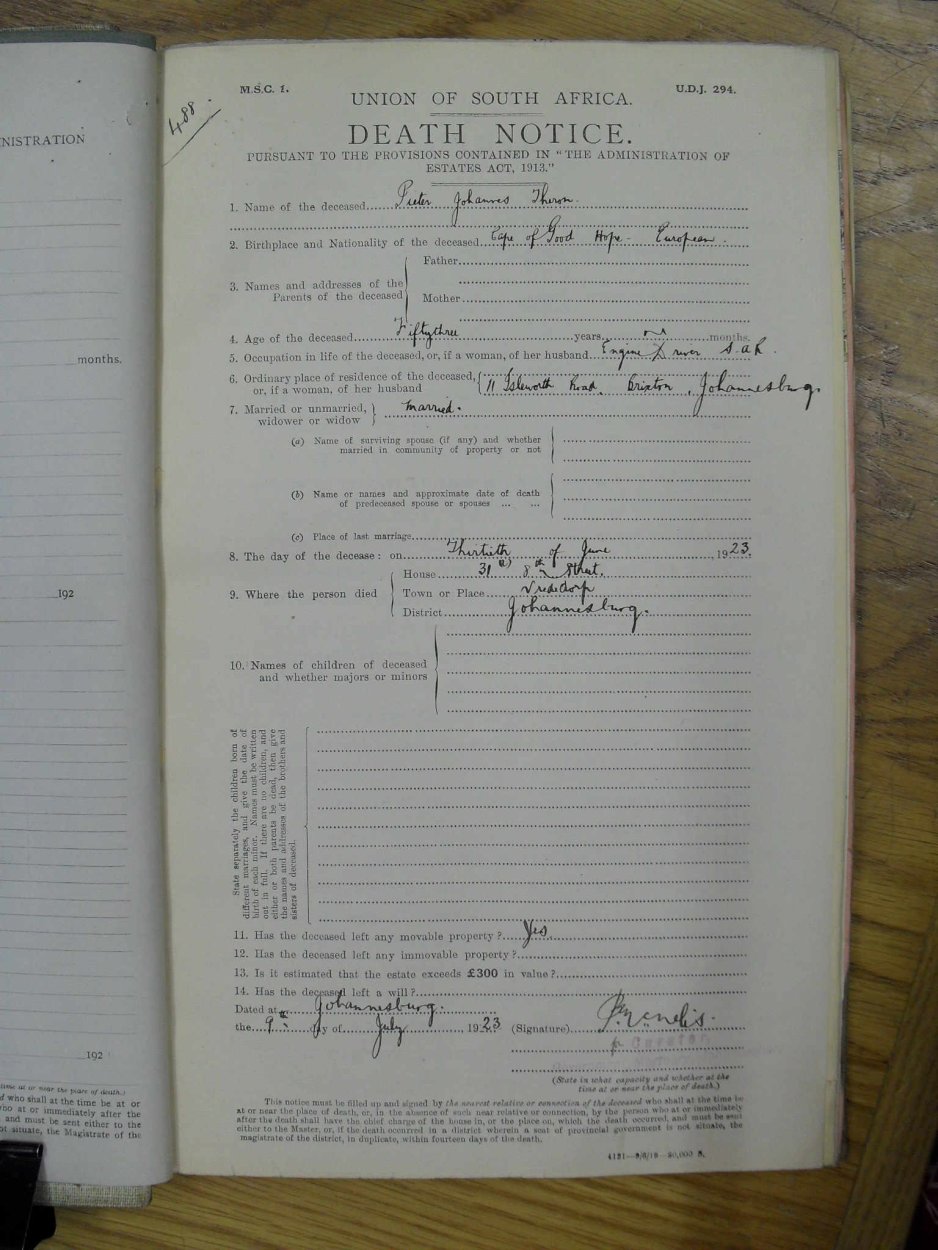 NISTRATION
months.
192
192
time at or near the place of death.)
d who shall at the time be at or
who at or immediately after the
and must be sent either to the
ot situate, the Magistrate of the
488
M.S.C. 1.
U.D.J. 294.
UNION OF SOUTH AFRICA.
DEATH NOTICE.
PURSUANT TO THE PROVISIONS CONTAINED IN "THE ADMINISTRATION OF
ESTATES ACT, 1913."
1. Name of the deceased Pieter Johannes Theron.
2. Birthplace and Nationality of the deceased Cape of Good Hope - European.
3. Names and addresses of the Parents of the deceased
Father
Mother
4. Age of the deceased Fiftythree years months.
5. Occupation in life of the deceased, or, if a woman, of her husband Engine Driver S.A.R.
6. Ordinary place of residence of the deceased, or, if a woman, of her husband 11 Isleworth Road, Brixton, Johannesburg.
7. Married or unmarried, widower or widow married.
(a) Name of surviving spouse (if any) and whether
married in community of property or not
(b) Name or names and approximate date of death
of predeceased spouse or spouses ... ...
(c) Place of last marriage
8. The day of the decease: on Thirtieth of June 1923.
9. Where the person died
House 31 (a) 8th Street,
Town or Place Vrededorp
District Johannesburg.
10. Names of children of deceased
and whether majors or minors
State separately the children born of
different marriages, and give the date of
birth of each minor. Names must be written
out in full. If there are no children, and
either or both parents be dead, then give
the names and addresses of the brothers and
sisters of deceased.
11. Has the deceased left any movable property? Yes
12. Has the deceased left any immovable property?
13. Is it estimated that the estate exceeds £300 in value?
14. Has the deceased left a will?
Dated at Johannesburg.
the 9th day of July, 1923 (Signature)
p Curator
(State in what capacity and whether at the
time at or near the place of death.)
This notice must be filled up and signed by the nearest relative or connection of the deceased who shall at the time be
at or near the place of death, or, in the absence of such near relative or connection, by the person who at or immediately
after the death shall have the chief charge of the house in, or the place on, which the death occurred, and must be sent
either to the Master, or, if the death occurred in a district wherein a seat of provincial government is not situate, the
magistrate of the district, in duplicate, within fourteen days of the death.